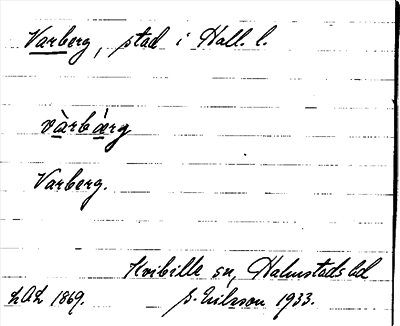 Varberg, stad i Hall. l.
vàrbærg
Varberg.
Kvibille sn, Halmstads hd
LAL 1869. S. Eriksson 1933.